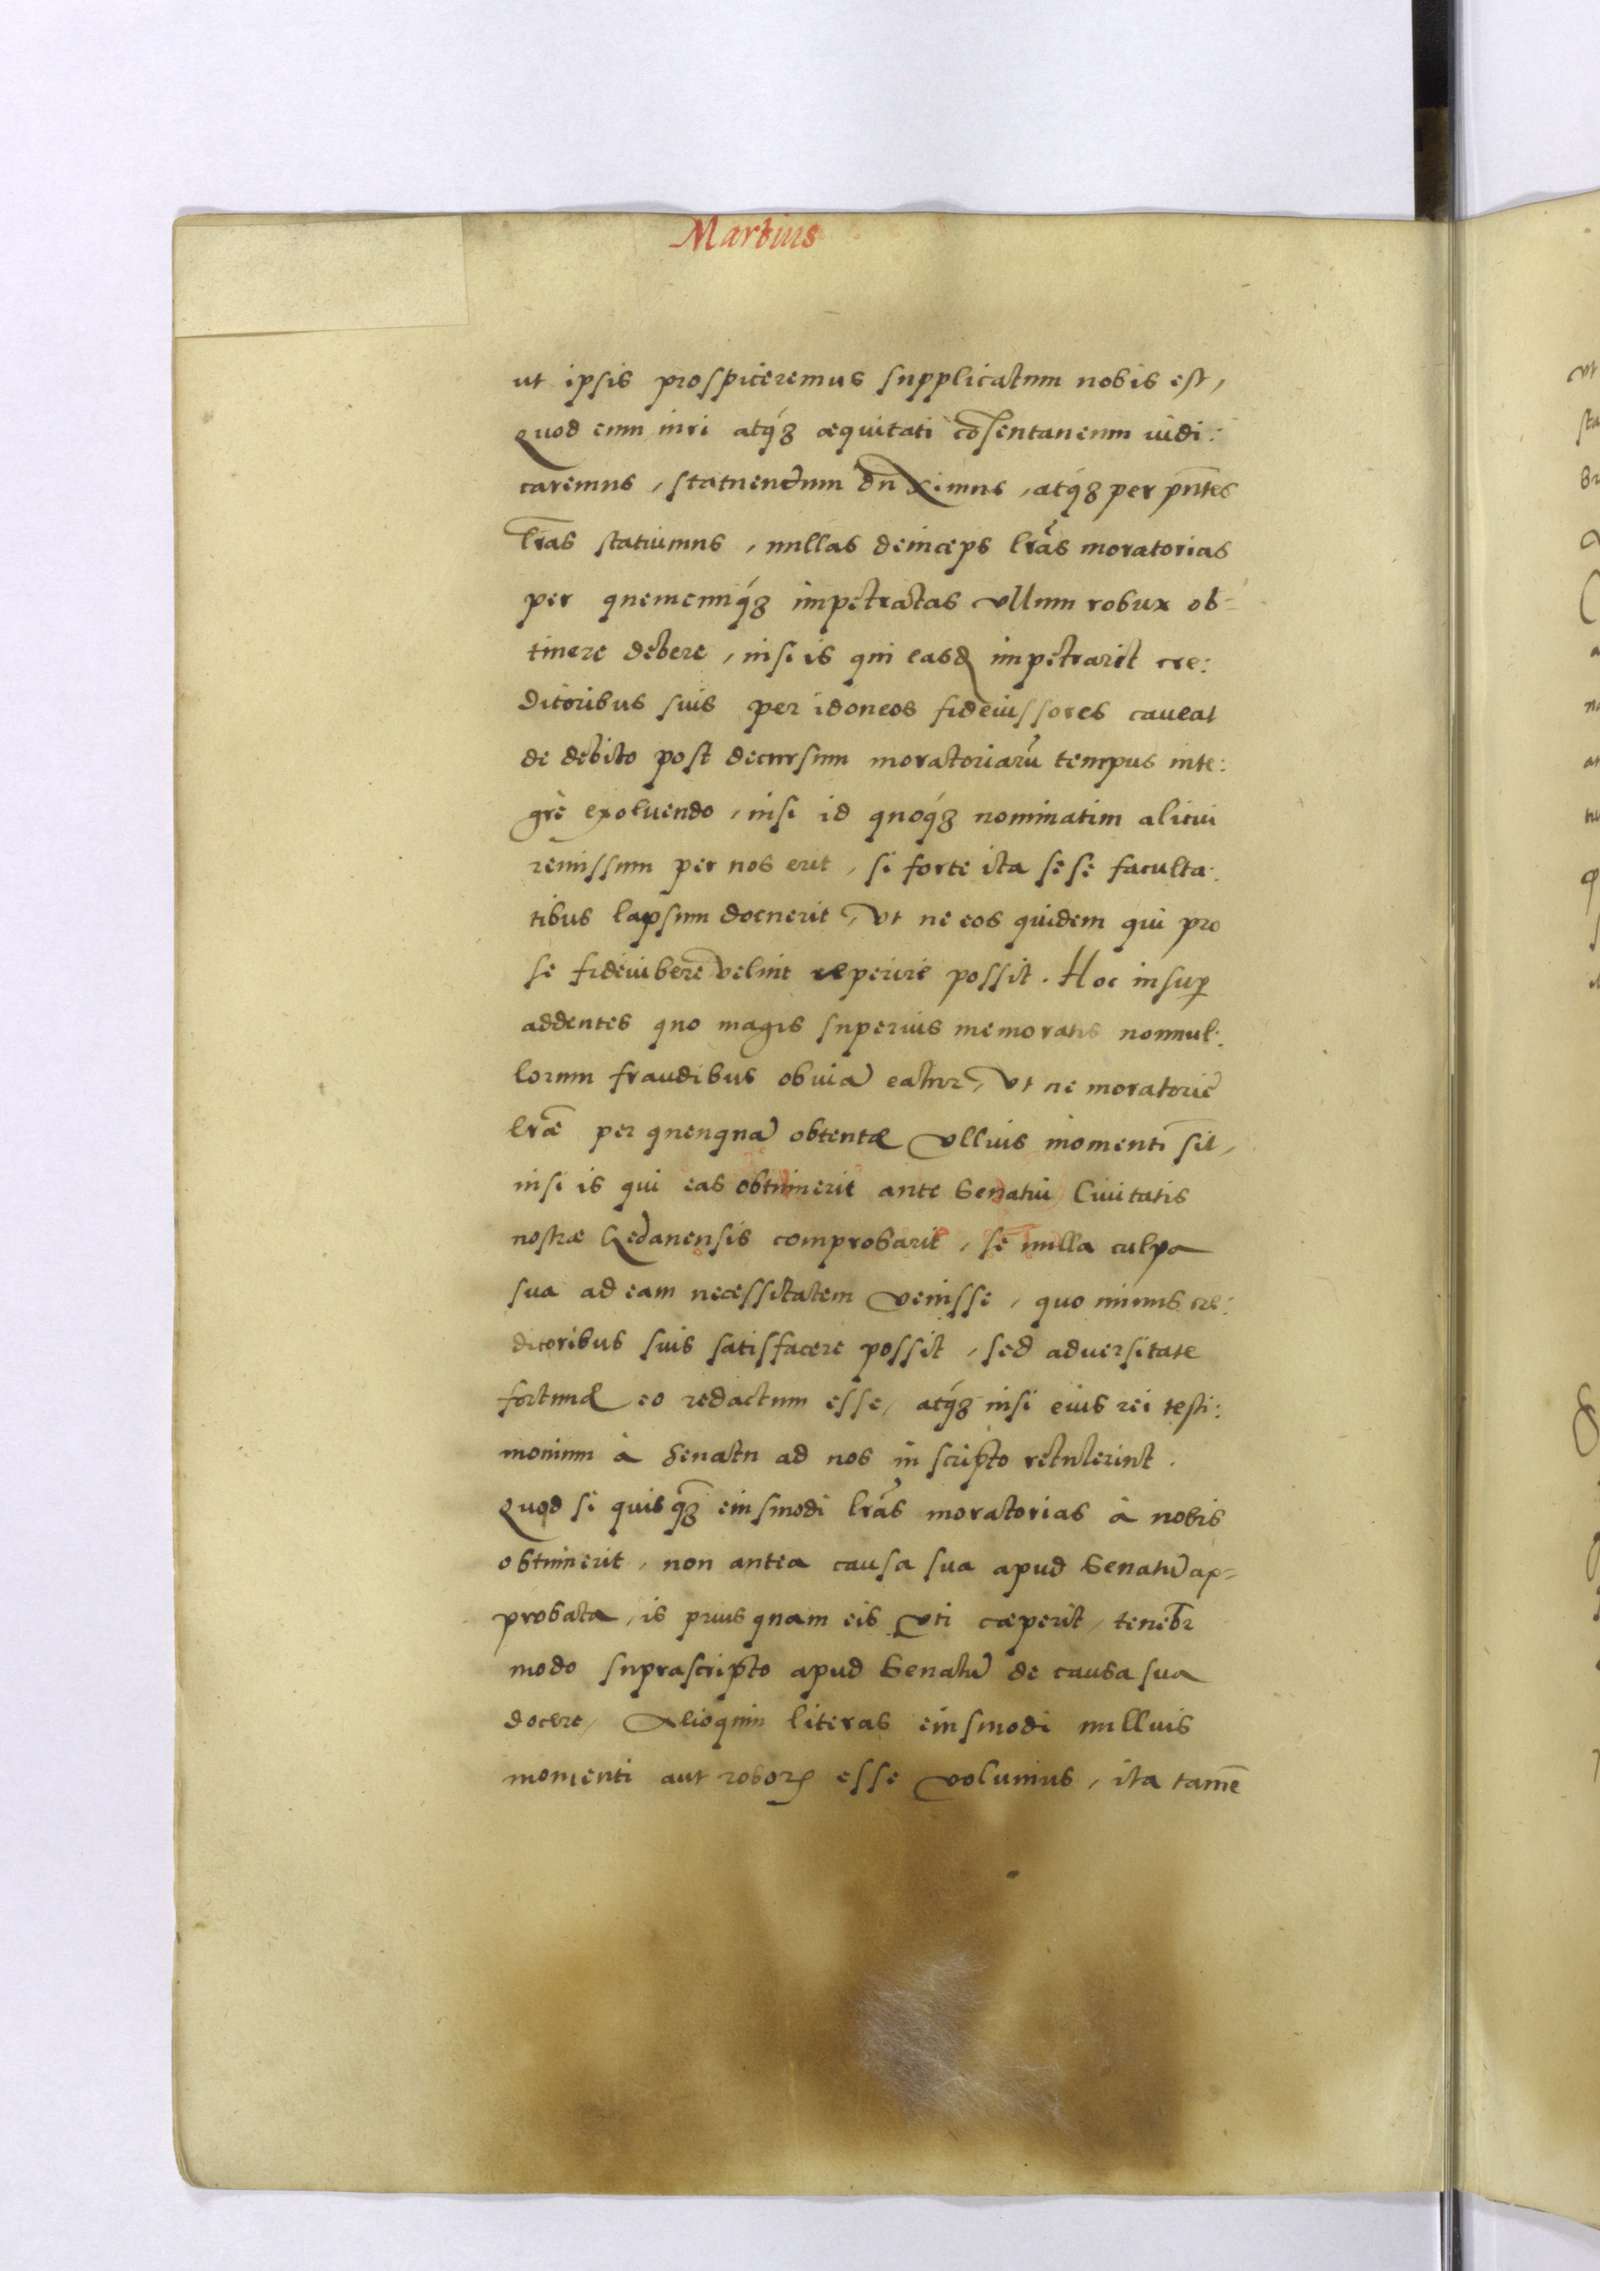 Martius
ut ipsis prospiceremus supplicatum nobis est,
Quod cum iuri atq́ꝫ æquitati cõsentaneum iudi:
caremus, statuendum duximus, atq́ꝫ per pñtes
lr̃as statuimus, nullas deinceps lr̃as moratorias
per quemcunq́ꝫ impetratas vllum robur ob=
tinere debere, nisi is qui easd impetrarit cre:
ditoribus suis per idoneos fideiussores caueat
de debito post decursum moratoriarũ tempus inte:
grè exoluendo, nisi id quoq́ꝫ nominatim alicui
remissum per nos erit, si forte ita sese faculta:
tibus lapsum docuerit, vt ne eos quidem qui pro
se fideiubere velint reperire possit. Hoc insup̱
addentes quo magis superius memoratis nonnul:
lorum fraudibus obuiã eatur, vt ne moratorię
lr̃æ per quenquã obtentæ vllius momenti sĩt,
nisi is qui eas obtinuerit ante Senatũ Ciuitatis
nostræ Gedanensis comprobarit, se nulla culpa
sua ad eam necessitatem venisse, quo minus cre:
ditoribus suis satisfacere possit, sed aduersitate
fortunæ eo redactum esse, atq́ꝫ nisi eius rei testi:
monium à Senatu ad nos in scripto retulerint.
Quod si quisq̃ꝫ eiusmodi lr̃as moratorias à nobis
obtinuerit, non antea causa sua apud Senatũ ap=
probata, is prius quam eis vti cæperit, tenebr̃
modo suprascripto apud Senatũ de causa sua
docere, Alioquin literas eiusmodi nullius
momenti aut roboris esse volumus, ita tamẽ